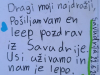 Dragi moji najdražji,
Pošiljam vam en
leep pozdrav
iz Savudrije.
Vsi uživamo in
nam je lepo.